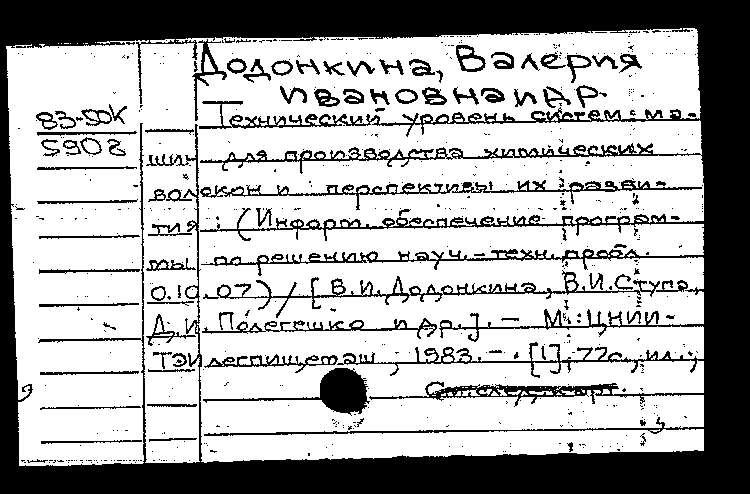 Додонкина, Валерия
Ивановна и др.
83-50К
5908
Технический уровень систем ма-
шин для производства химических
волокон и перспективы их разви-
тия : (Информ. обеспечение програм-
мы по решению науч.-техн. пробл.
0.10.07) / [В.И. Додонкина, В.И. Ступа,
Д.И. Полегешко и др.]. – М.: ЦНИИ-
ТЭИлегпищемаш, 1983. – . [1], 77с., ил.;